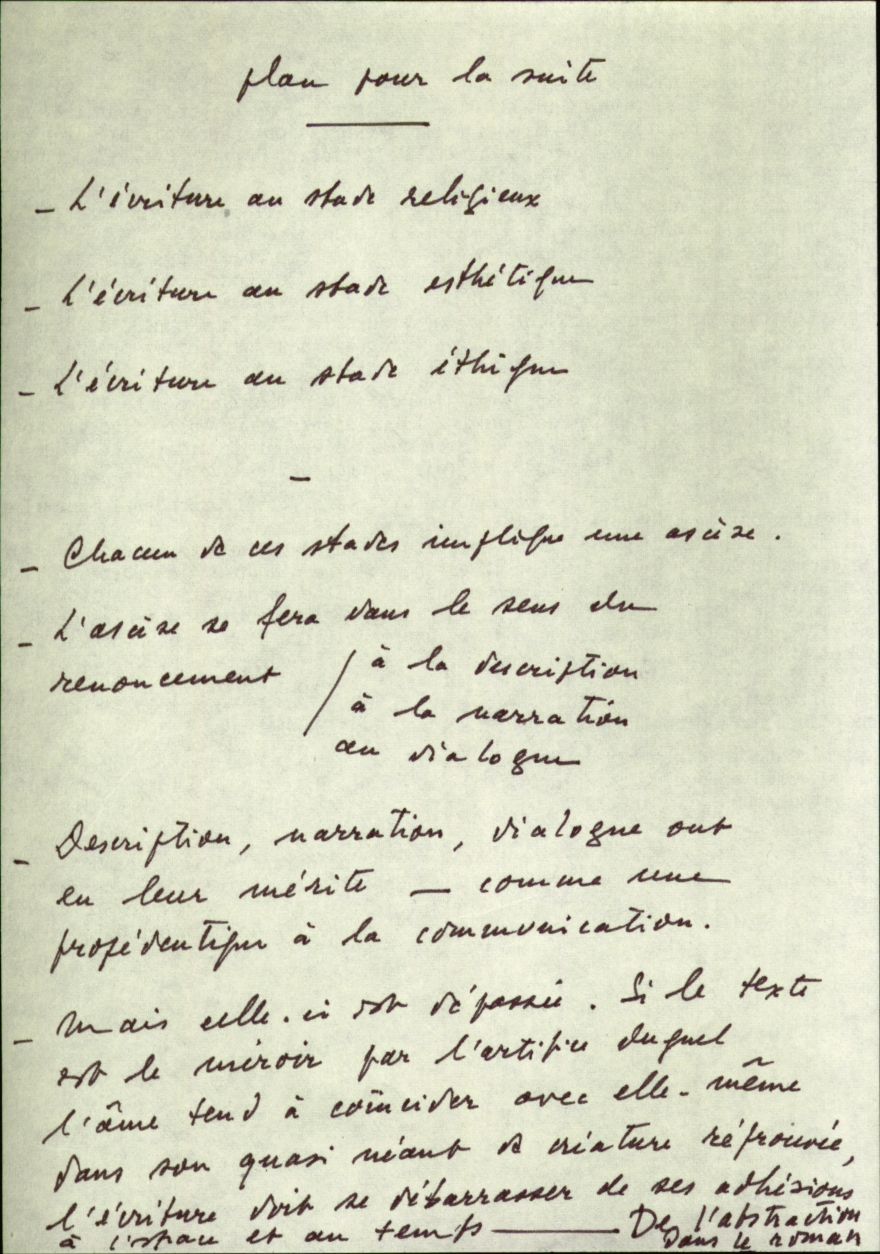 plan pour la suite
- L'écriture au stade religieux
- L'écriture au stade esthétique
- L'écriture au stade éthique
-
- Chacun de ces stades implique une ascèse.
- L'ascèse se fera dans le sens du
renoncement / à la description
à la narration
au dialogue
- Description, narration, dialogue ont
eu leur mérite — comme une
propédeutique à la communication.
- Mais celle-ci est dépassée. Si le texte
est le miroir par l'artifice duquel
l'âme tend à coïncider avec elle-même
dans son quasi néant de créature réprouvée,
l'écriture doit se débarrasser de ses adhésions
à l'espace et au temps — De l'abstraction
dans le roman